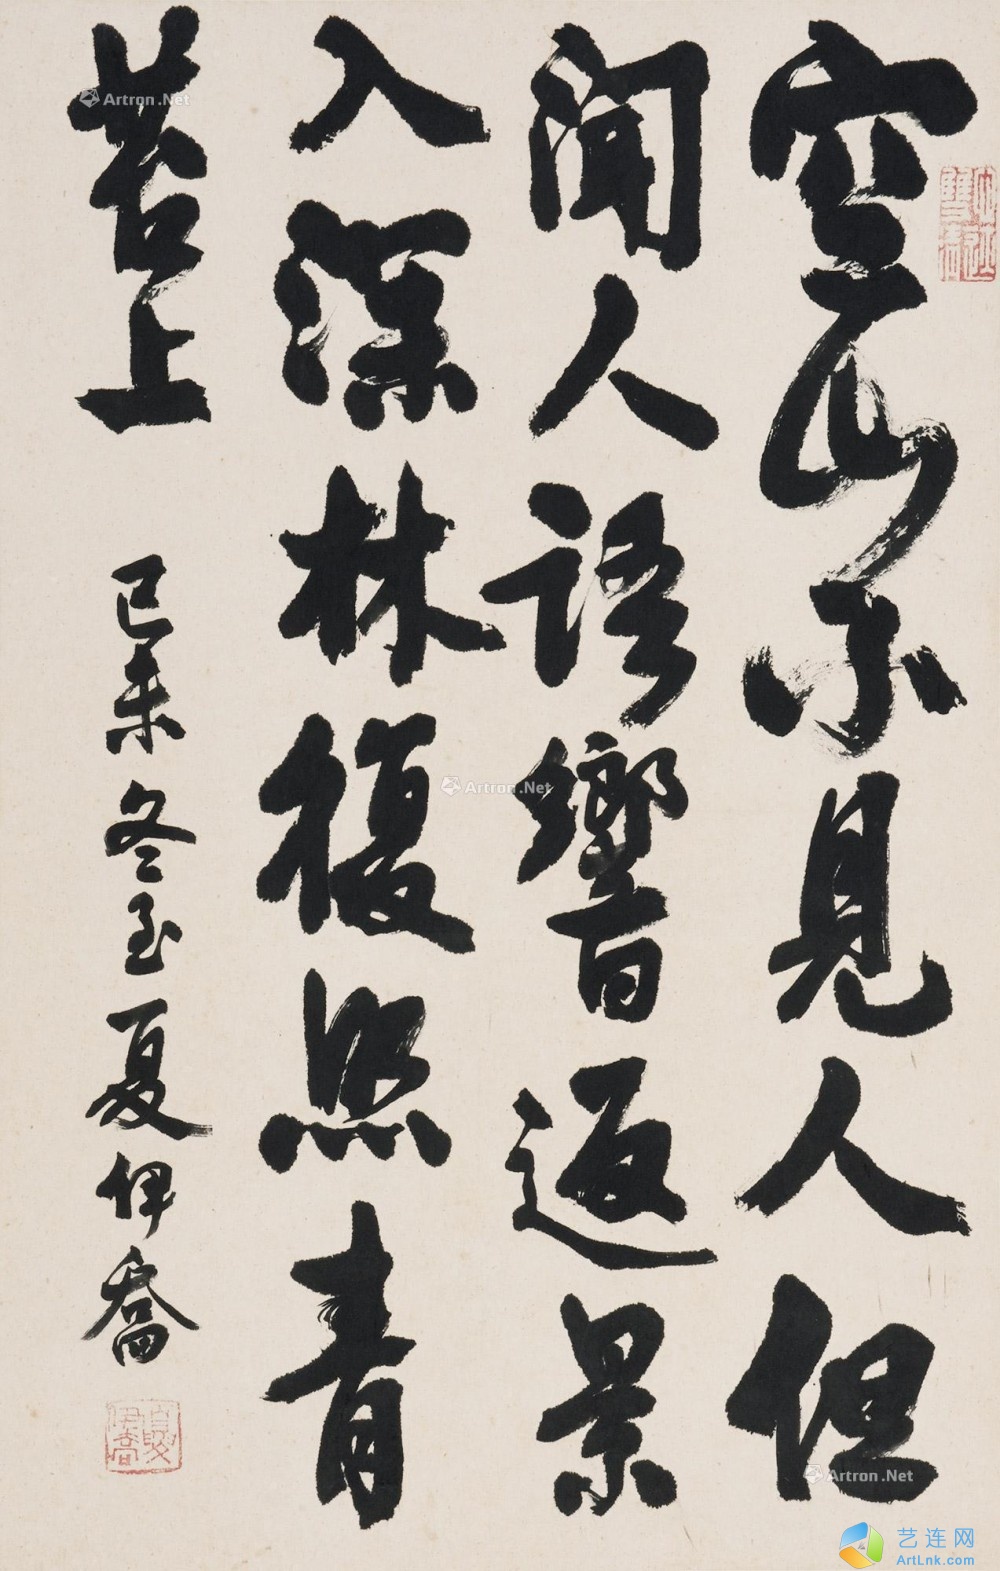 空山不見人但
聞人語響返景
入深林復照青
苔上
己未冬至夏伊喬
夏伊喬
Artron.Net
Artron.Net
Artron.Net
艺连网
ArtLnk.com